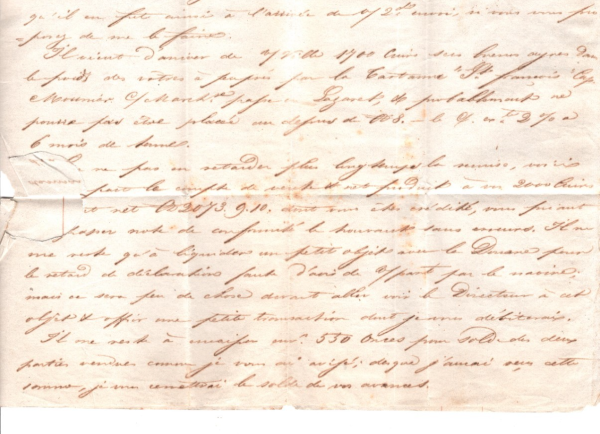 qu'il en fut ainsi à l'arrivée de v/ 2e envoi, si vous vous pro-
posez de me le faire.
Il vient d'arriver de 1700 Cuirs secs buenos ayres dans
le poids des votres à peu près par la Tartanne "St françois" Cap
Mounier. passe au Lazaret, & probablement ne
pourra pas être placée au dessus de 68.- le %. 2 % a
6 mois de terme.
ne pas en retarder plus longtemps la remise, voici
part le compte de vente & net produit à vos 2000 Cuirs
net 2073.9.10. dont vous êtes crédités, vous priant
passer note de conformité le trouvant sans erreurs. Il ne
me reste qu'à liquider un petit objet avec la Douane pour
le retard de déclaration faute d'avis de v/ part par le navire.
mais ce sera peu de chose devant aller voir le Directeur à cet
objet & offrir une petite transaction dont je vous débiterais.
Il me reste à encaisser 550 Onces pour solde des deux
parties vendues comme je vous ai avisé; dès que j'aurai reçu cette
somme, je me remettrai le solde de vos avances.